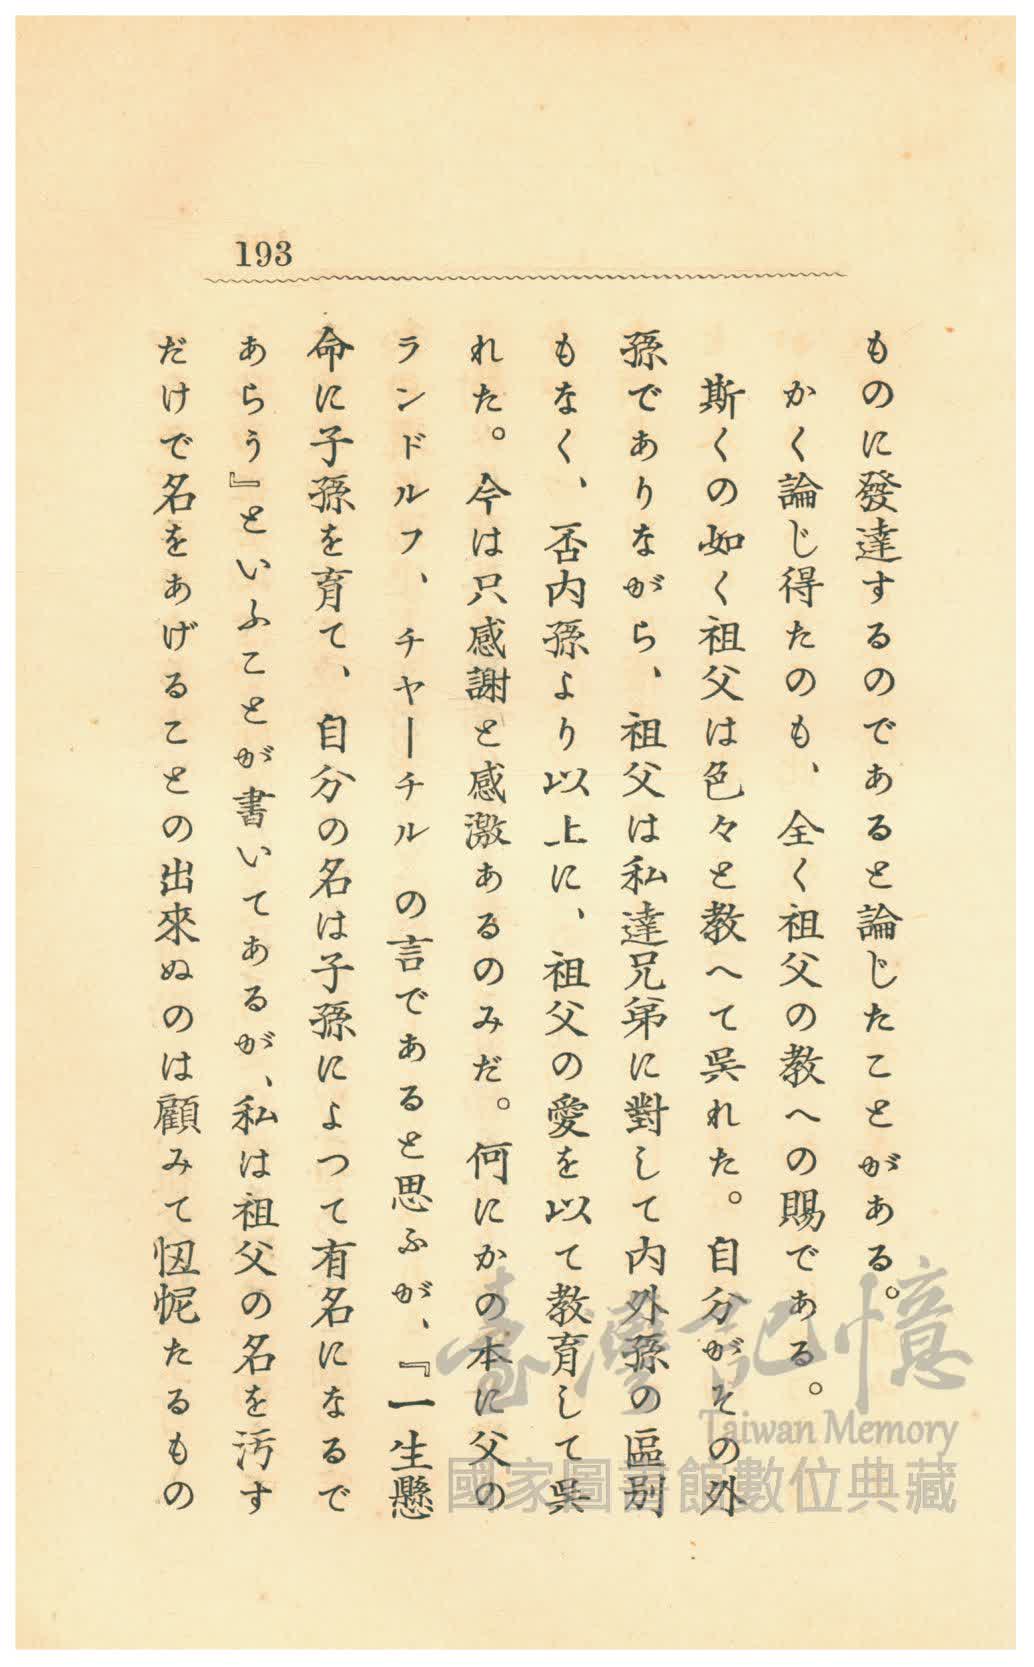 193
ものに發達するのであると論じたことがある。
かく論じ得たのも、全く祖父の教への賜である。
斯くの如く祖父は色々と教へて呉れた。自分がその外
孫でありながら、祖父は私達兄弟に對して内外孫の區別
もなく、否内孫より以上に、祖父の愛を以て教育して呉
れた。今は只感謝と感激あるのみだ。何にかの本に父の
ランドルフ、チヤーチルの言であると思ふが、『一生懸
命に子孫を育て、自分の名は子孫によつて有名になるで
あらう』といふことが書いてあるが、私は祖父の名を汚す
だけで名をあげることの出來ぬのは顧みて忸怩たるもの
臺灣記憶
Taiwan Memory
國家圖書館數位典藏